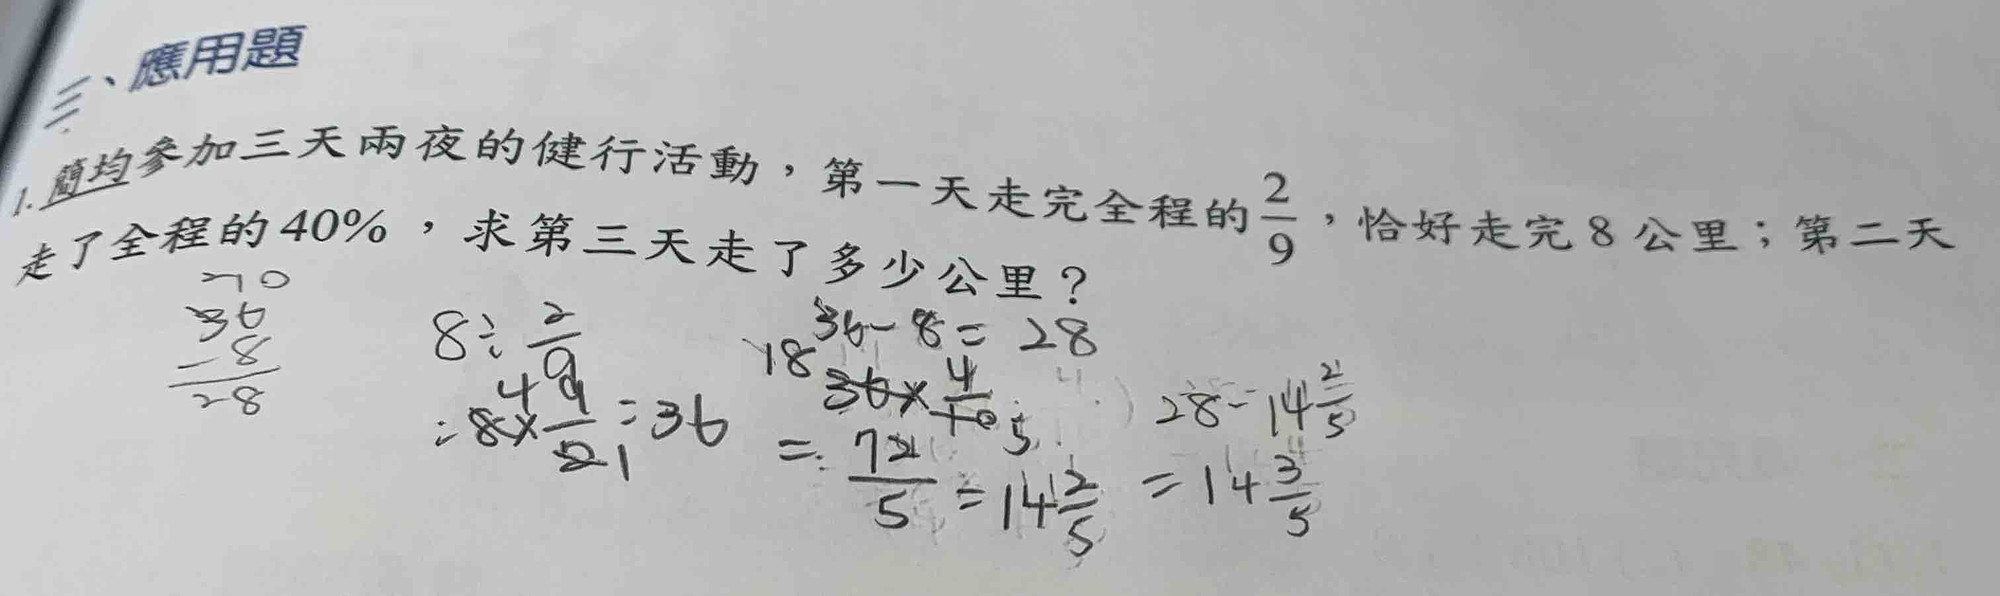 三、應用題
1. 簡均參加三天兩夜的健行活動，第一天走完全程的 2/9，恰好走完 8 公里；第二天
走了全程的 40%，求第三天走了多少公里？
36
- 8
28
8÷2/9
=8×9/2=36
36-8=28
36×4/10
=72/5=14 2/5
28-14 2/5
=14 3/5